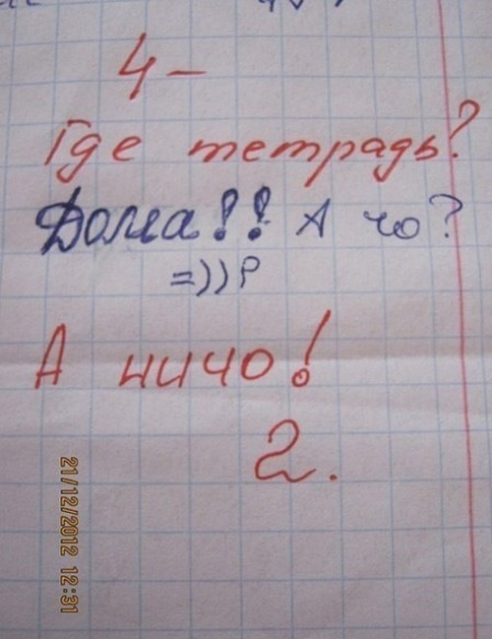 4 –
Где тетрадь?
Дома!! А чо?
=)) P
А ничо!
2.
21/12/2012 12:31